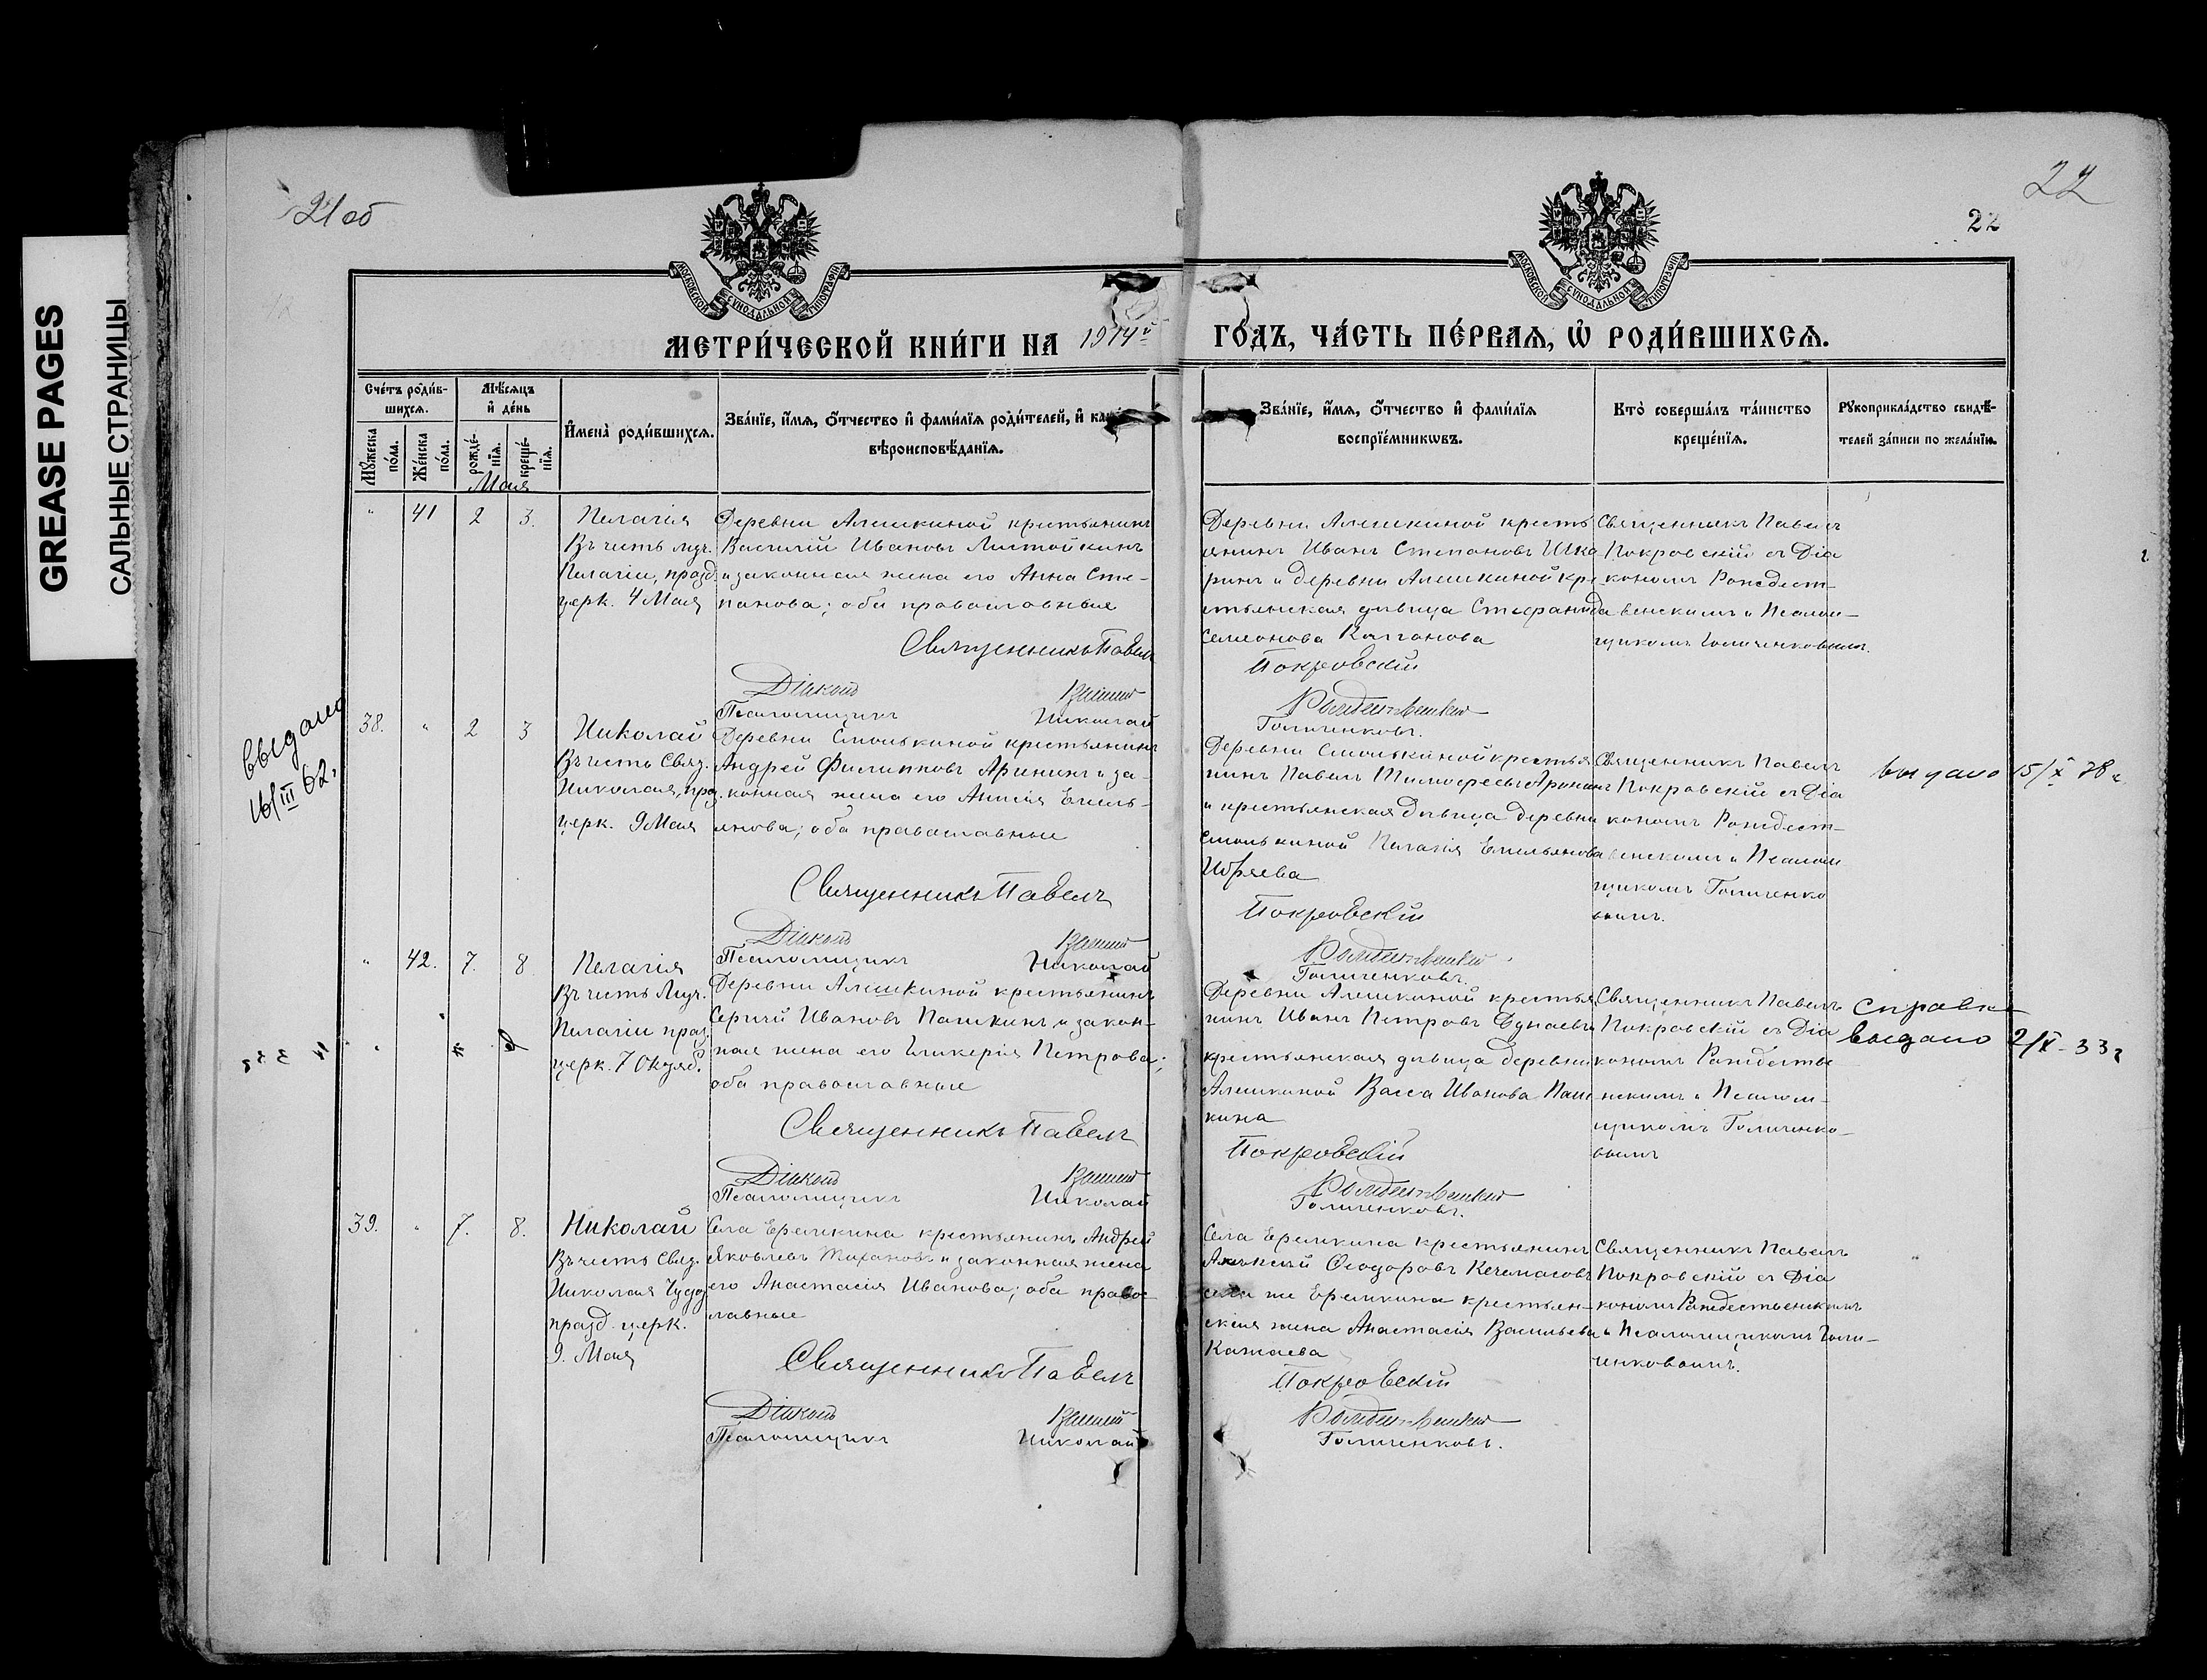 GREASE PAGES
САЛЬНЫЕ СТРАНИЦЫ
21 об
22
22
МОСКОВСКОЙ СѴНОДАЛЬНОЙ ТИПОГРАФІИ
МОСКОВСКОЙ СѴНОДАЛЬНОЙ ТИПОГРАФІИ
МЕТРИ́ЧЕСКОЙ КНИ́ГИ НА 1914й ГО́ДЪ, ЧА́СТЬ ПЕ́РВАЯ, Ѡ҆ РОДИ́ВШИХСЯ.
Сче́тъ роди́в-
шихся.
Мѹ́жеска
по́ла.
Же́нска
по́ла.
Мѣ́сяцъ
и҆ де́нь
рожде́-
нїя.
креще́-
нїя.
Мая
И҆мена̀ роди́вшихся.
Зва́нїе, и҆́мя, ѻ҆́тчество и҆ фами́лїя роди́телей, и҆ как
вѣроисповѣ́данїя.
Зва́нїе, и҆́мя, ѻ҆́тчество и҆ фами́лїя
воспрїе́мникѡвъ.
Кто̀ соверша́лъ та́инство
креще́нїя.
Рѹкоприкла́дство свидѣ́-
телей за́писи по жела́нїю.
" 41 2 3.
Пелагія
Въ честь муч.
Пелагіи, празд.
церк. 4 Мая
Деревни Алешкиной крестьянинъ
Василій Ивановъ Листойкинъ
и законная жена его Анна Сте-
панова; оба православные
Священникъ Павелъ
Діаконъ
Псаломщикъ Николай
Деревни Алешкиной кресть
янинъ Иванъ Степановъ Шка
ринъ и деревни Алешкиной кре
стьянская дѣвица Стефанида
Семенова Калганова
Покровскій
Рождественскій
Голиченковъ.
Священникъ Павелъ
Покровскій съ Діа
кономъ Рождест-
венскимъ и Псалом-
щикомъ Голиченковымъ.
выдано
16/III 62.
38. " 2 3
Николай
Въ честь Свят.
Николая, праз.
церк. 9 Мая
Деревни Смолькиной крестьянинъ
Андрей Филипповъ Аринин и за-
конная жена его Анисія Емель-
янова; оба православные
Священникъ Павелъ
Діаконъ
Псаломщикъ Николай
Деревни Смолькиной крестья
нинъ Павелъ Тимофеевъ
и крестьянская дѣвица деревни
Смолькиной Пелагія Емельянова
Покровскій
Рождественскій
Голиченковъ.
Священникъ Павелъ
Покровскій съ Діа
кономъ Рождест-
венскимъ и Псалом
щикомъ Голиченко
вымъ.
выдано 15/X 78 г.
" 42. 7. 8
Пелагія
Въ честь Муч.
Пелагіи праз.
церк. 7 Октяб.
Деревни Алешкиной крестьянинъ
Сергѣй Ивановъ Пашкинъ и закон-
ная жена его Гликерія Петрова;
оба православные
Священникъ Павелъ
Діаконъ
Псаломщикъ Николай
Деревни Алешкиной крестья
нинъ Иванъ Петровъ Дунаевъ
крестьянская дѣвица деревни
Алешкиной Васса Иванова Паш
кина
Покровскій
Рождественскій
Голиченковъ.
Священникъ Павелъ
Покровскій съ Діа
кономъ Рождестве
нскимъ и Псалом-
щикомъ Голиченко-
вымъ
Справка
выдано 2/X-33 г
39. " 7. 8.
Николай
Въ честь Свят.
Николая Чудо
празд. церк.
9. Мая
Села Еремкина крестьянинъ Андрей
Яковлевъ и законная жена
его Анастасія Иванова; оба право-
славные
Священникъ Павелъ
Діаконъ
Псаломщикъ Николай
Села Еремкина крестьянинъ
Алексѣй Ѳеодоровъ
села же Еремкина крестьян-
ская жена Анастасія Васильева
Покровскій
Рождественскій
Голиченковъ.
Священникъ Павелъ
Покровскій съ Діа
кономъ Рождественскимъ
и Псаломщикомъ Голи-
ченковымъ.